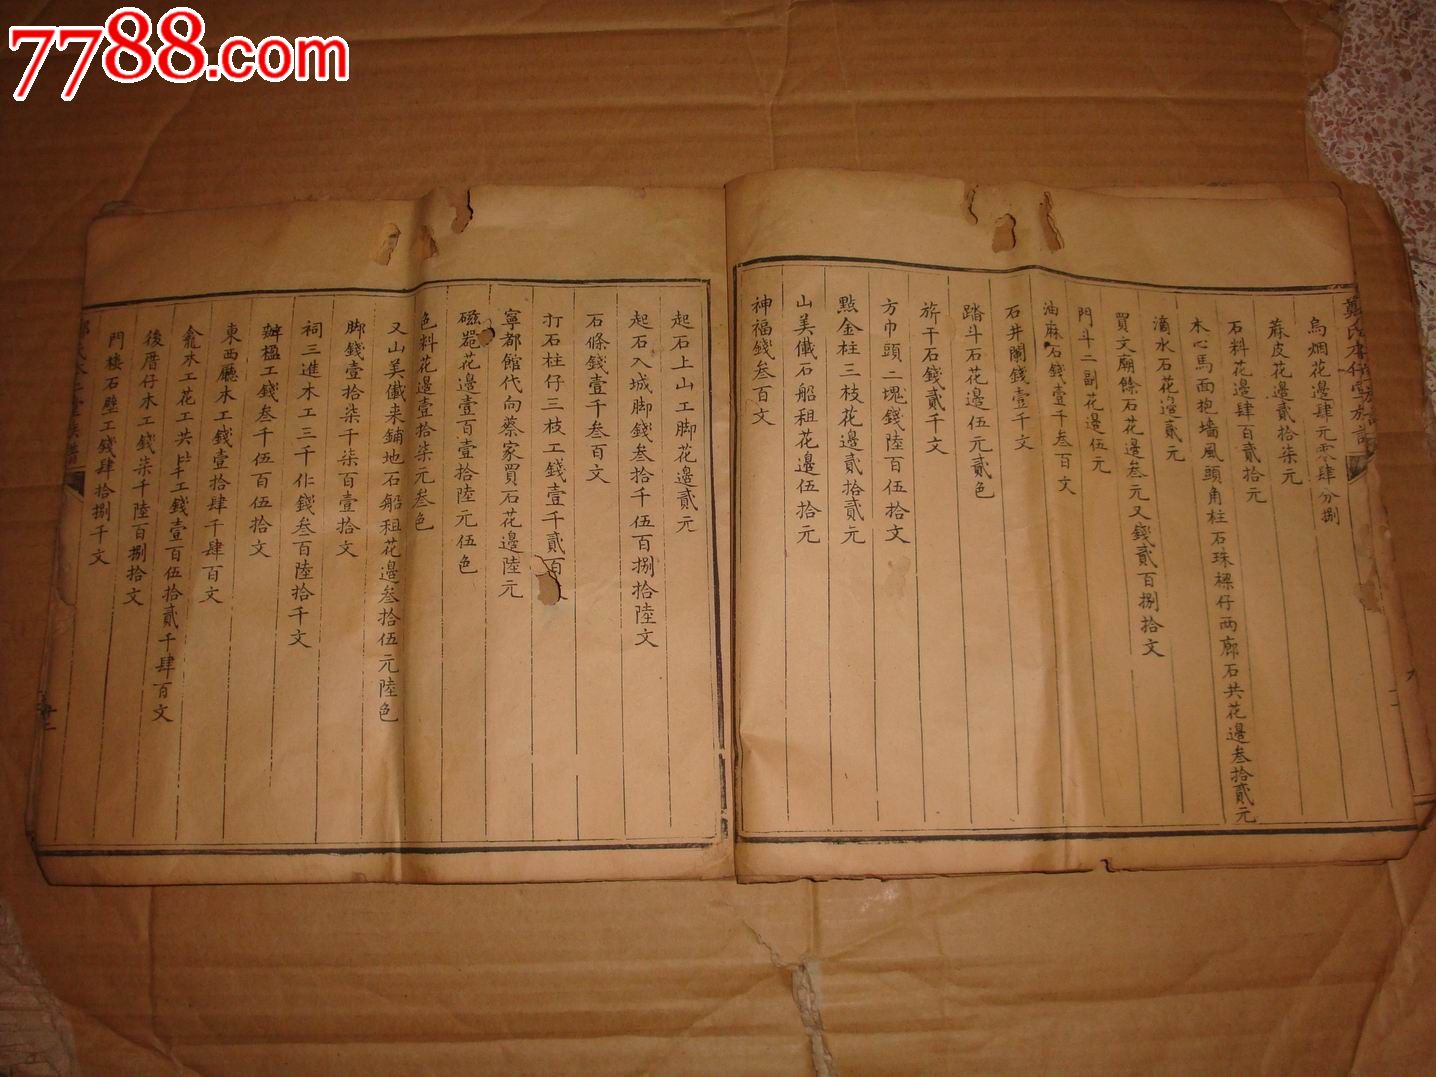 7788.com
烏烟花邊肆元零肆分捌
蔴皮花邊貳拾柒元
石料花邊肆百貳拾元
木心馬面抱墻風頭角柱石珠樑仔两廊石共花邊叁拾貳元
滴水石花邊貳元
買文廟餘石花邊叁元又錢貳百捌拾文
門斗二副花邊伍元
油麻石錢壹千叁百文
石井闌錢壹千文
踏斗石花邊伍元貳色
旂干石錢貳千文
方巾頭二塊錢陸百伍拾文
點金柱三枝花邊貳拾貳元
山美儎石船租花邊伍拾元
神福錢叁百文
起石上山工脚花邊貳元
起石入城脚錢叁拾千伍百捌拾陸文
石條錢壹千叁百文
打石柱仔三枝工錢壹千貳百
寧都館代向蔡家買石花邊陸元
磁器花邊壹百壹拾陸元伍色
色料花邊壹拾柒元叁色
又山美儎来鋪地石船租花邊叁拾伍元陸色
脚錢壹拾柒千柒百壹拾文
祠三進木工三千仁錢叁百陸拾千文
辦楹工錢叁千伍百伍拾文
東西廳木工錢壹拾肆千肆百文
龕木工花工共工錢壹百伍拾貳千肆百文
後厝仔木工錢柒千陸百捌拾文
門樓石壁工錢肆拾捌千文